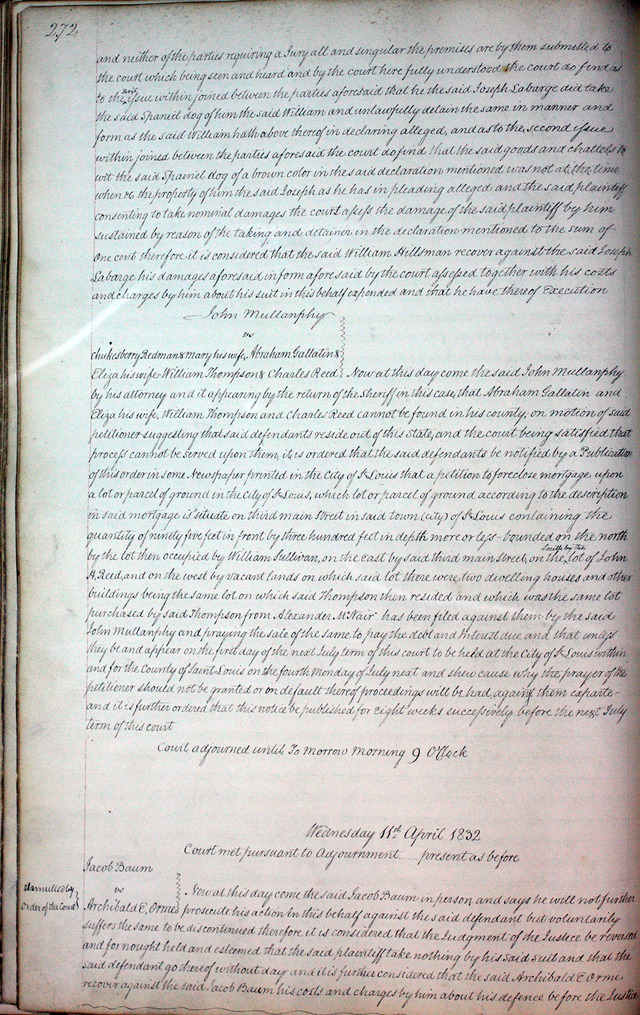 272
and neither of the parties requiring a Jury all and singular the premises are by them submitted to
the court which being seen and heard and by the court here fully understood the court do find as
to the first issue within joined between the parties aforesaid that he the said Joseph Labarge did take
the said Spaniel dog of him the said William and unlawfully detain the same in manner and
form as the said William hath above thereof in declaring alleged, and as to the second issue
within joined between the parties aforesaid the court do find that the said goods and chattels to
wit the said Spainiel dog of a brown color in the said declaration mentioned was not at the time
when &c the property of him the said Joseph as he has in pleading alleged and the said plaintiff
consenting to take nominal damages the court assess the damage of the said plaintiff by him
sustained by reason of the taking and detainer in the declaration mentioned to the sum of
One cent therefore it is considered that the said William Hillsman recover against the said Joseph
Labarge his damages aforesaid in form aforesaid by the court assessed together with his costs
and charges by him about his suit in this behalf expended and that he have thereof Execution
John Mullanphy
vs
Chukesberry Redman & Mary his wife, Abraham Gallatin &
Eliza his wife William Thompson & Charles Reed. Now at this day come the said John Mullanphy
by his attorney and it appearing by the return of the Sheriff in this case, that Abraham Gallatin and
Eliza his wife, William Thompson and Charles Reed cannot be found in his county, on motion of said
petitioner suggesting that said defendants reside out of this State, and the court being satisfied that
process cannot be served upon them, it is ordered that the said defendants be notified by a Publication
of this order in some Newspaper printed in the City of St Louis that a petition to foreclose mortgage upon
a lot or parcel of ground in the City of St Louis, which lot or parcel of ground according to the description
in said mortgage is situate on third main Street in said town (city) of St Louis containing the
quantity of ninety five feet in front by three hundred feet in depth more or less - bounded on the north
by the lot then occupied by William Sullivan, on the east by said third main Street, on the South by the lot of John
H. Reed, and on the west by vacant lands on which said lot there were two dwelling houses and other
buildings being the same lot on which said Thompson then resided and which was the same lot
purchased by said Thompson from Alexander McNair has been filed against them by the said
John Mullanphy and praying the sale of the same to pay the debt and Interest due and that unless
they be and appear on the first day of the next July term of this court to be held at the City of St Louis within
and for the County of Saint Louis on the fourth Monday of July next and shew cause why the prayer of the
petitioner should not be granted or on default thereof proceedings will be had against them exparte
and it is further ordered that this notice be published for Eight weeks successively before the next July
term of this court
Court adjourned until To Morrow Morning 9 O'Clock
Wednesday 11th April 1832
Court met pursuant to Adjournment present as before
Jacob Baum
vs
Annulled by
Order of the Court
Archibald E. Orme
Now at this day come the said Jacob Baum in person and says he will not further
prosecute his action in this behalf against the said defendant but voluntarily
suffers the same to be discontinued therefore it is considered that the Judgment of the Justice be reversed
and for nought held and esteemed that the said plaintiff take nothing by his said suit and that the
said defendant go thereof without day and it is further considered that the said Archibald E Orme
recover against the said Jacob Baum his costs and charges by him about his defence before the Justice